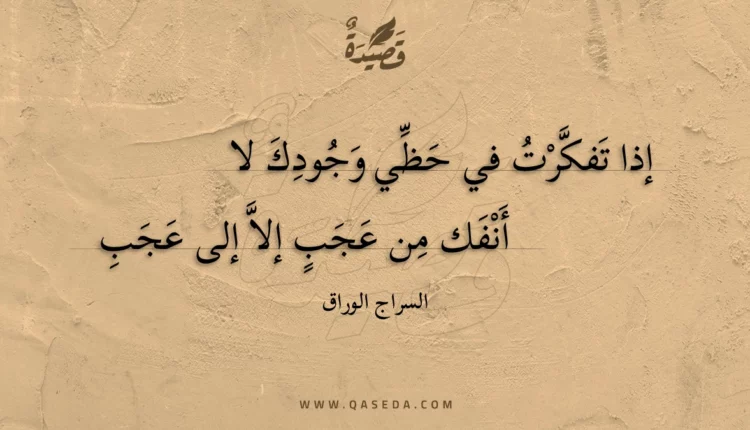 قَصِيْدَةٌ
إذا تَفكَّرْتُ في حَظِّي وَجُودِكَ لا
أَنْفَك مِن عَجَبٍ إلاَّ إلى عَجَبِ
السراج الوراق
WWW.QASEDA.COM